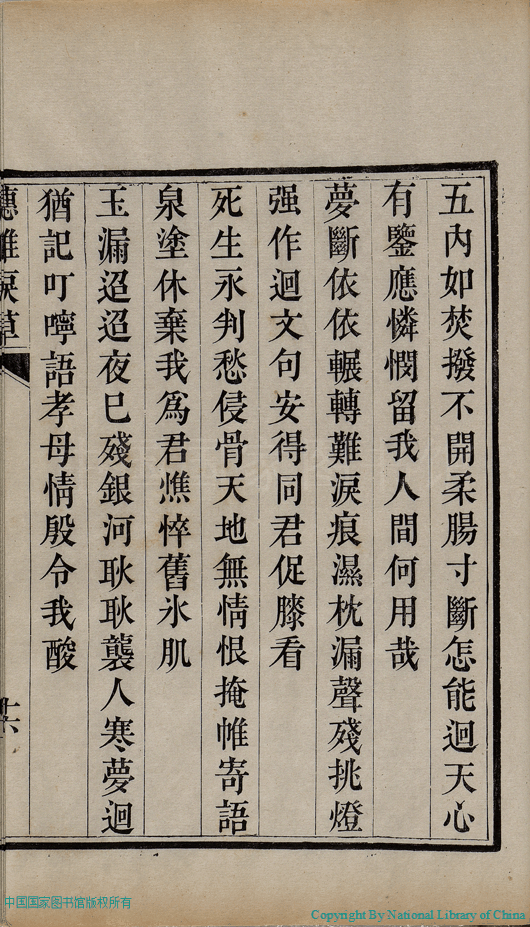 五內如焚撥不開柔腸寸斷怎能迴天心
有鑒應憐憫留我人間何用哉
夢斷依依輾轉難淚痕濕枕漏聲殘挑燈
强作迴文句安得同君促膝看
死生永判愁侵骨天地無情恨掩帷寄語
泉塗休棄我為君憔悴舊氷肌
玉漏迢迢夜巳殘銀河耿耿襲人寒夢迴
猶記叮嚀語孝母情殷令我酸
十六
中国国家图书馆版权所有
Copyright By National Library of China